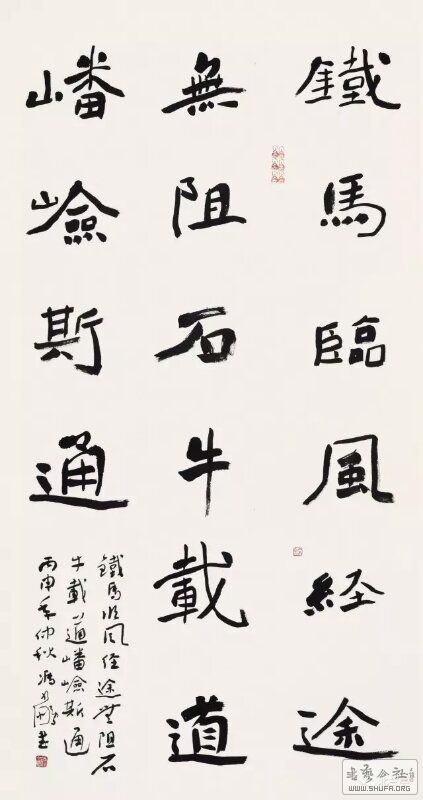 鐵馬臨風经途
無阻石牛載道
嶓嶮斯通
鐵馬临风经途無阻石
牛載道嶓嶮斯通
丙申年仲秋馮
書藝公社
WWW.SHUFA.ORG